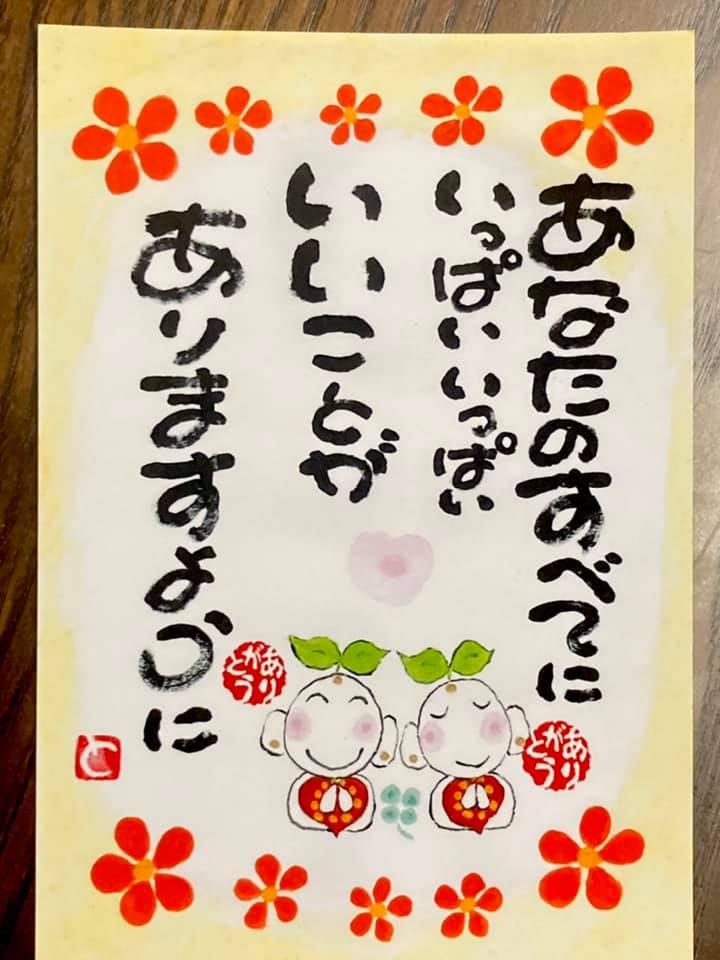 あなたのすべてに
いっぱいいっぱい
いいことが
ありますように
ありがとう
ありがとう
と